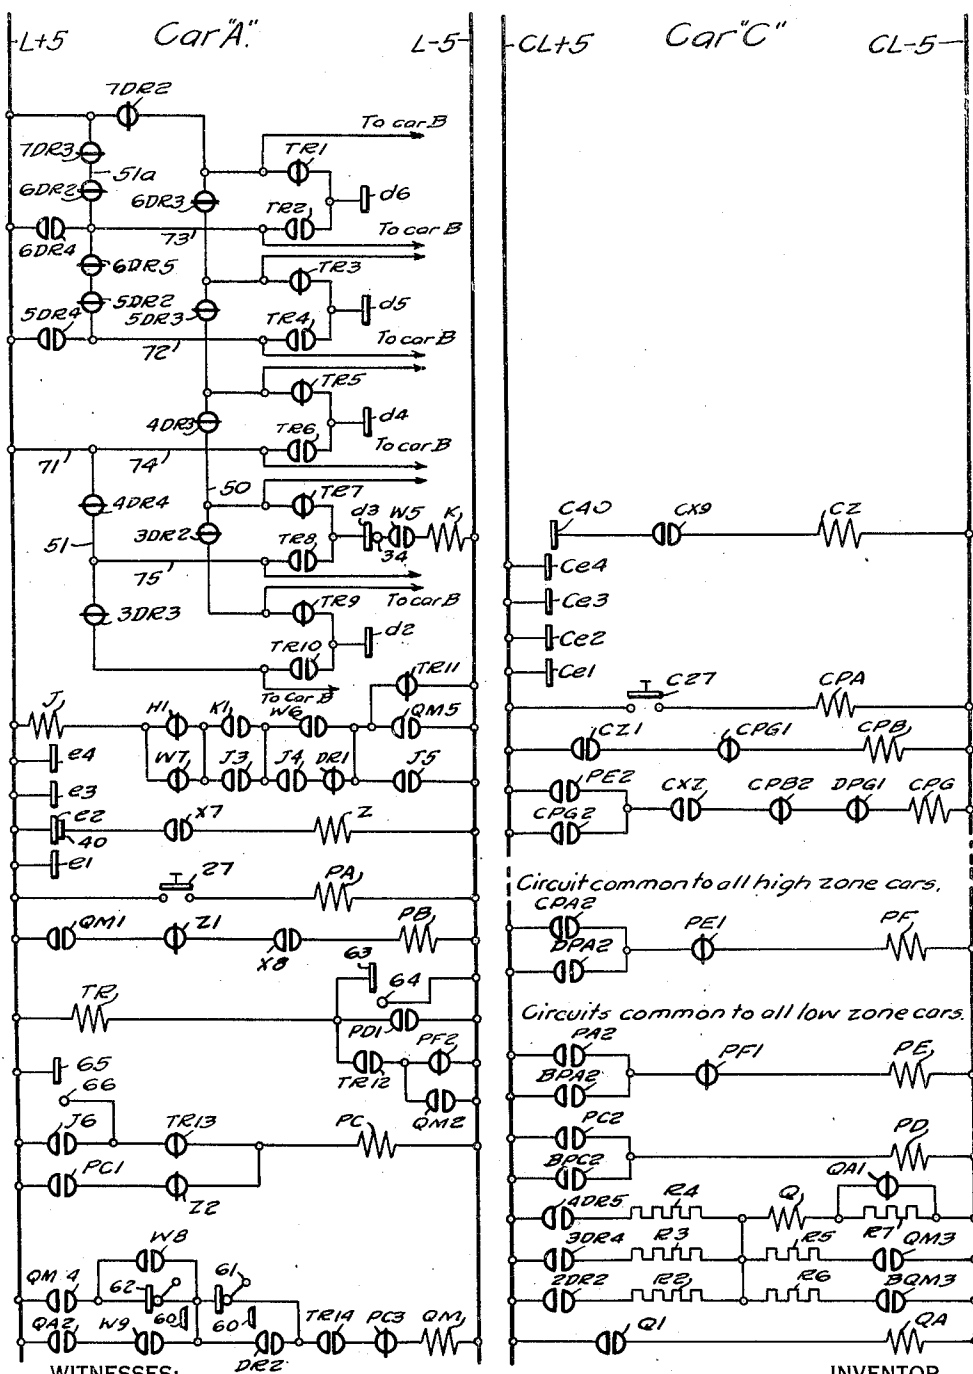 Car "A."
L+5
L-5
7DR2
To car B
7DR3
TR1
51a
6DR2
6DR3
d6
TR2
To car B
6DR4
73
6DR5
TR3
5DR2
5DR4
5DR3
d5
TR4
To car B
72
TR5
4DR3
d4
TR6
To car B
71
74
50
TR7
4DR4
d3
W5
K
51
3DR2
TR8
34
75
To car B
3DR3
TR9
d2
TR10
TR11
To Car B
J
H1
K1
W6
QM5
e4
W7
J3
J4
DR1
J5
e3
e2
X7
Z
40
e1
27
PA
QM1
Z1
X8
PB
63
64
TR
PD1
PF2
65
TR12
66
QM2
J6
TR13
PC
PC1
Z2
W8
QM4
62
61
60
60
QA2
W9
DR2
TR14
PC3
QM
WITNESSES:
Car "C"
CL+5
CL-5
C40
CX9
CZ
Ce4
Ce3
Ce2
Ce1
C27
CPA
CZ1
CPG1
CPB
PE2
CXZ
CPB2
DPG1
CPG
CPG2
Circuit common to all high zone cars.
CPA2
DPA2
PE1
PF
Circuits common to all low zone cars.
PA2
BPA2
PF1
PE
PC2
BPC2
PD
QA1
4DR5
R4
Q
R7
3DR4
R3
R5
QM3
2DR2
R2
R6
BQM3
Q1
QA
INVENTOR